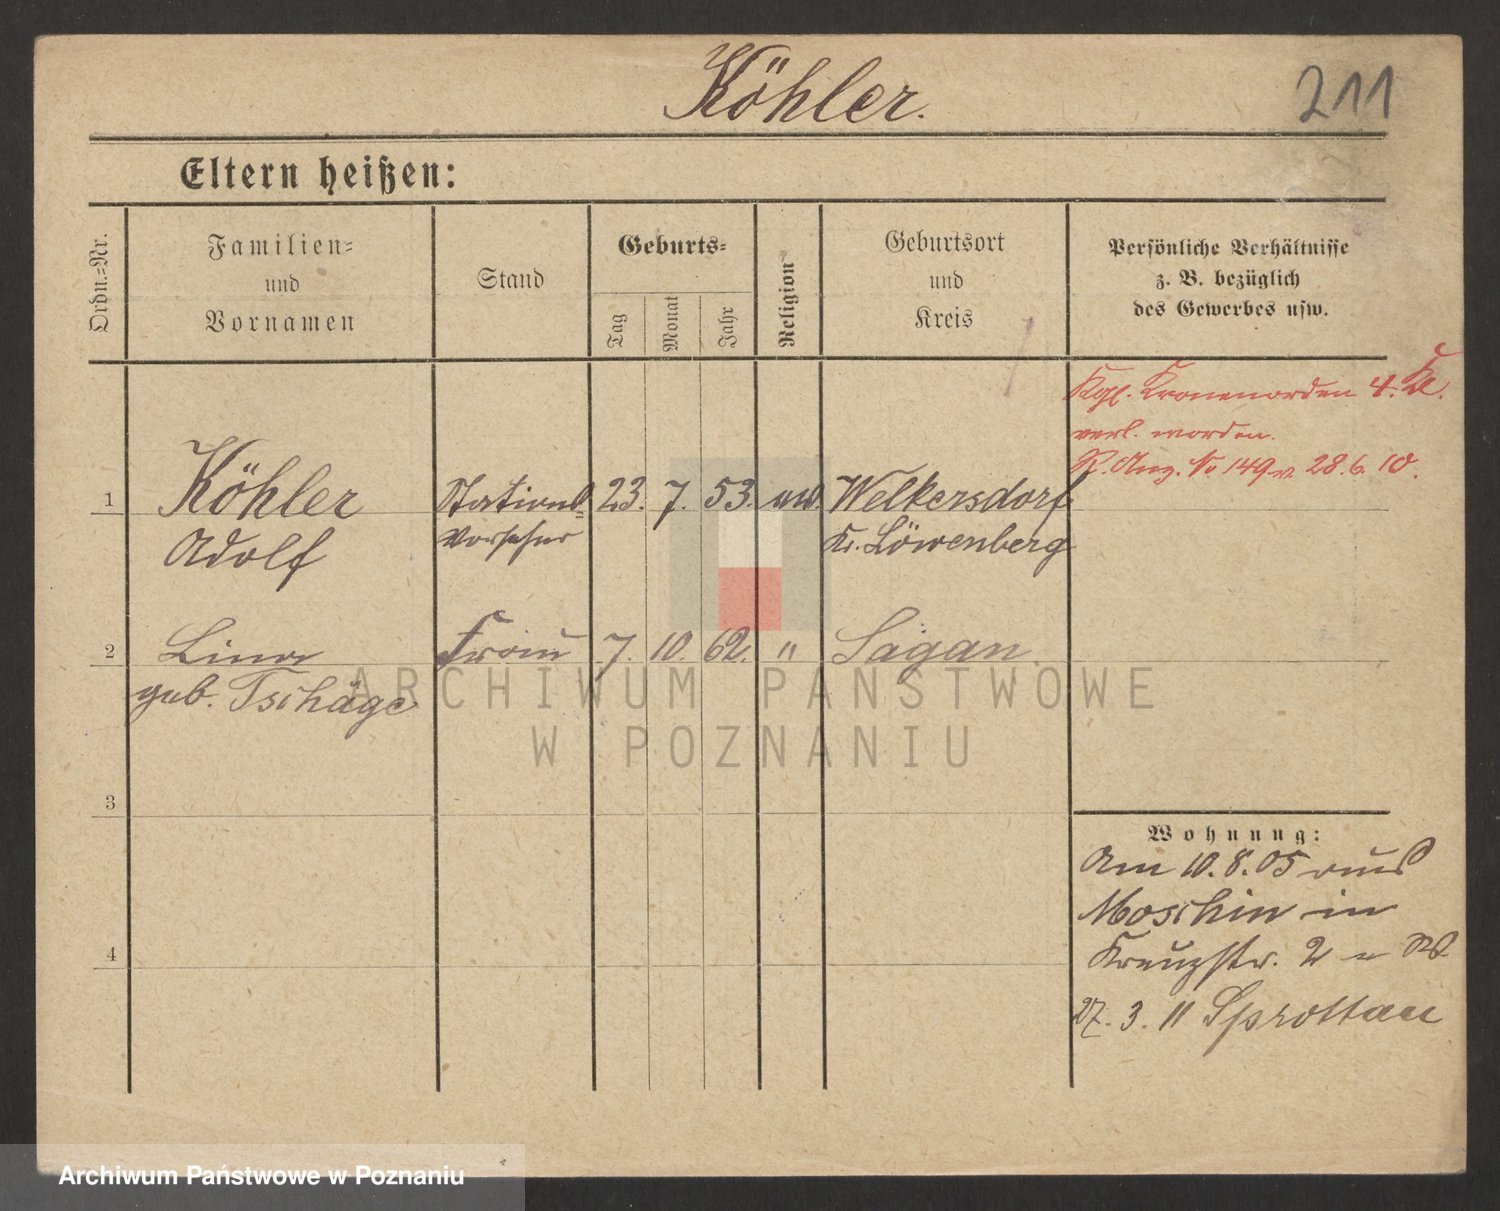 Köhler.
211
Eltern heißen:
Ordn.=Nr.
Familien=
und
Vornamen
Stand
Geburts=
Tag
Monat
Jahr
Religion
Geburtsort
und
Kreis
Persönliche Verhältnisse
z. B. bezüglich
des Gewerbes usw.
Kgl. Kronenorden 4. Kl.
verl. worden.
R. Anz. No 149 v. 28.6.10.
1 Köhler Stations= 23. 7. 53. Welkersdorf
Adolf Vorsteher Kr. Löwenberg
2 Lina Frau 7. 10. 62. " Sagan
geb. Tschäge
3
4
Wohnung:
Am 10.8.05 aus
Moschin in
Kreuzstr. 2
27. 3. 11 Sprottau
ARCHIWUM PAŃSTWOWE
W POZNANIU
Archiwum Państwowe w Poznaniu